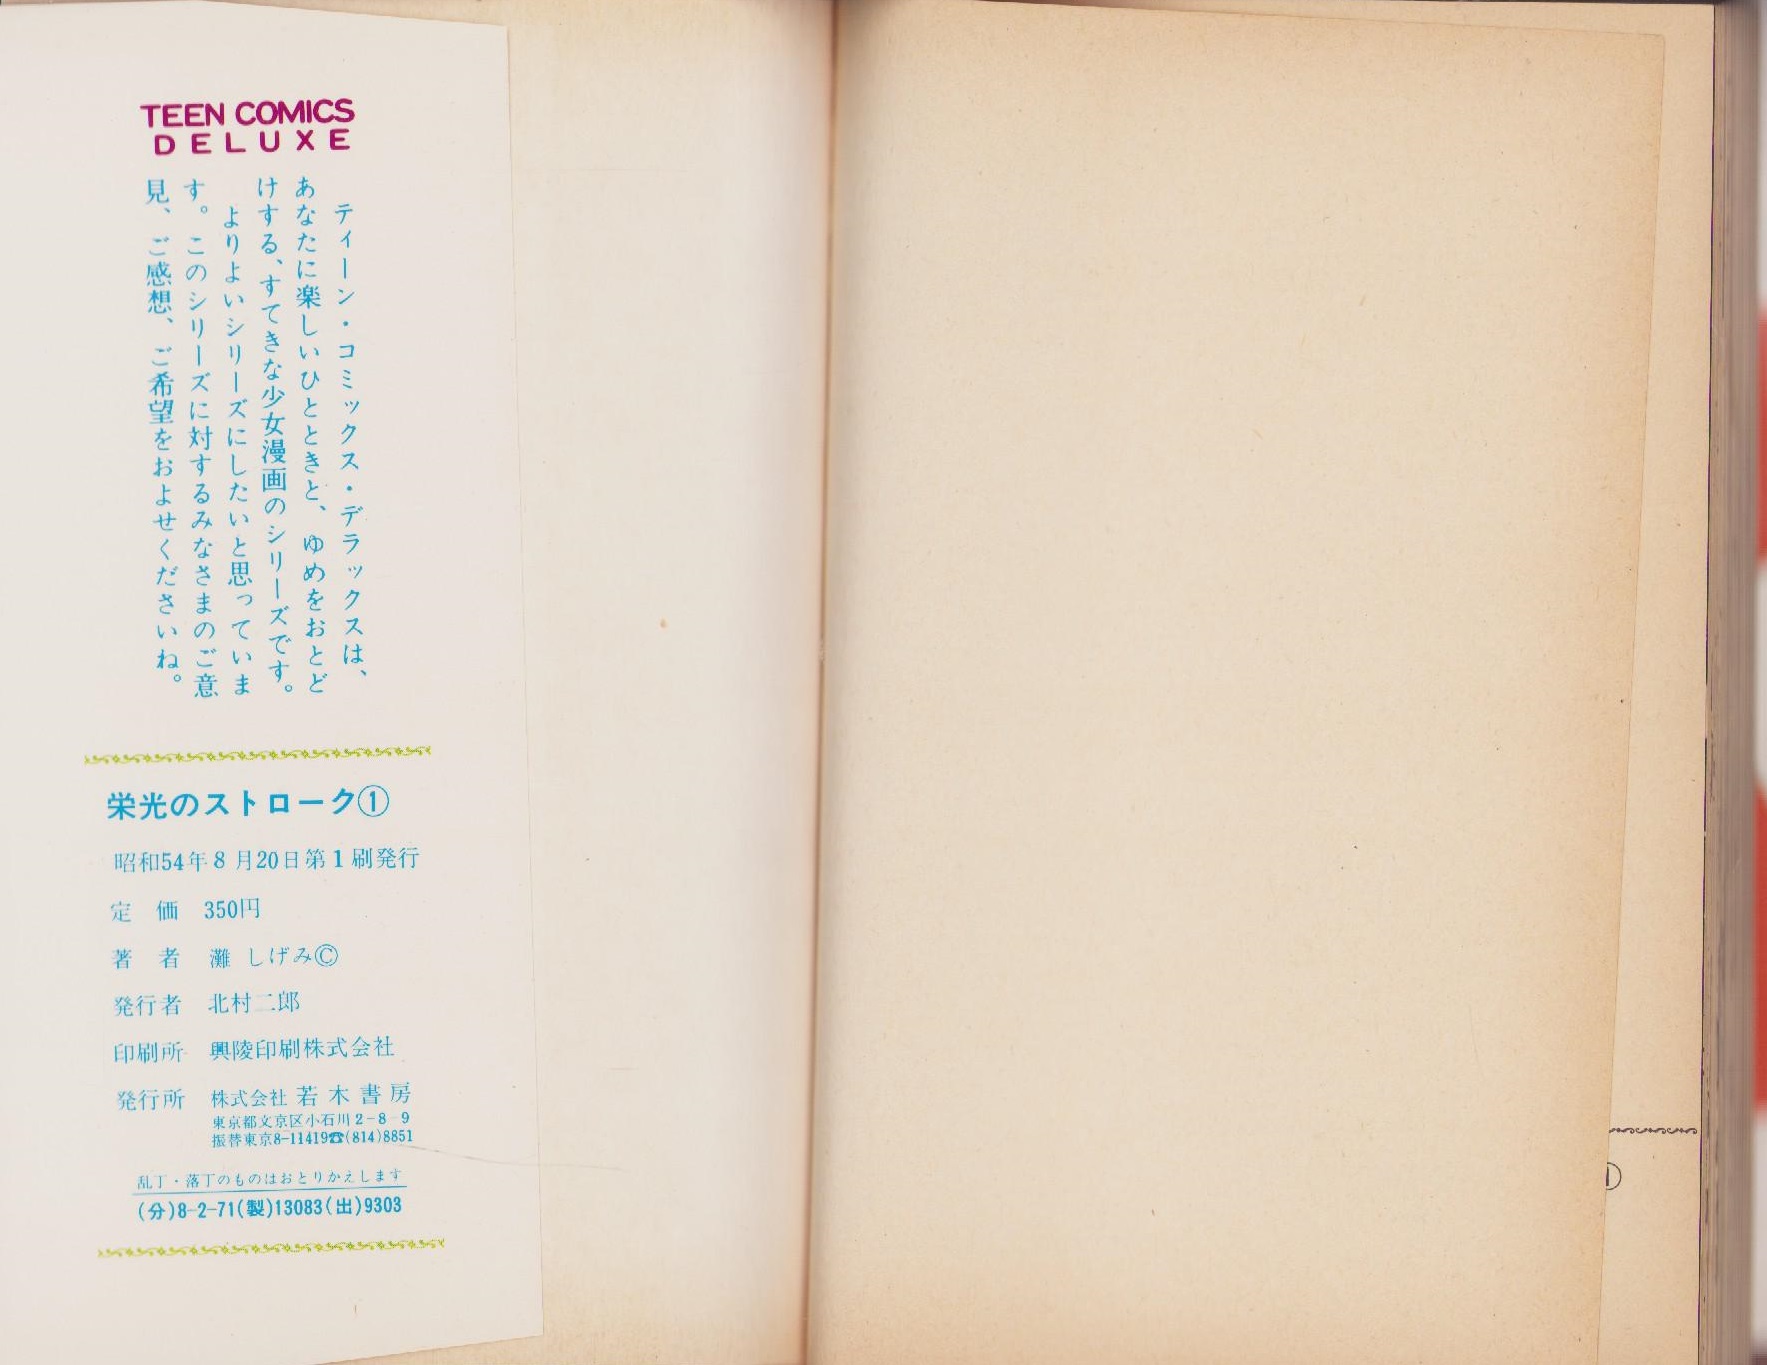 TEEN COMICS
DELUXE
ティーン・コミックス・デラックスは、
あなたに楽しいひとときと、ゆめをおとど
けする、すてきな少女漫画のシリーズです。
よりよいシリーズにしたいと思っていま
す。このシリーズに対するみなさまのご意
見、ご感想、ご希望をおよせくださいね。
栄光のストローク①
昭和54年8月20日第1刷発行
定　価　350円
著　者　灘 しげみ©
発行者　北村二郎
印刷所　興陵印刷株式会社
発行所　株式会社 若木書房
東京都文京区小石川2-8-9
振替東京8-11419☎(814)8851
乱丁・落丁のものはおとりかえします
(分)8-2-71(製)13083(出)9303